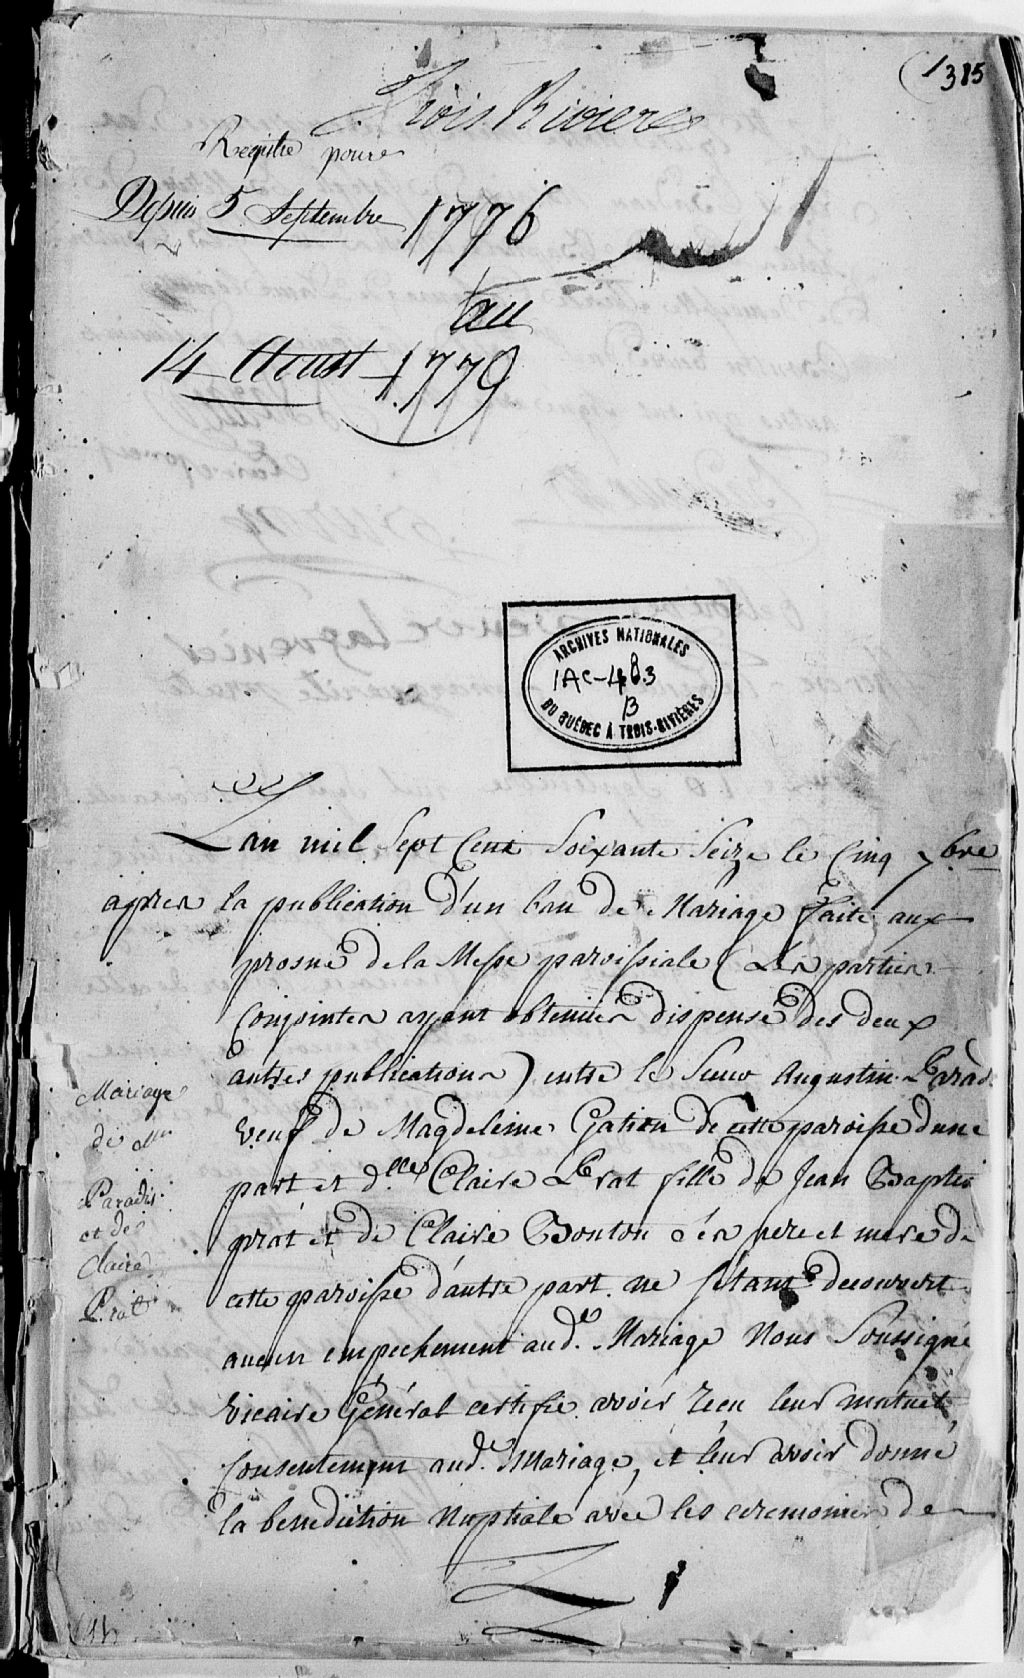 (1315
Trois Rivieres
Registre pour
Depuis 5 Septembre 1776
au
14 Aoust 1779
ARCHIVES NATIONALES
1AC-483
B
DU QUÉBEC À TROIS-RIVIÈRES
Lan mil Sept Cent Soixante Seize le Cinq 7bre
apres la publication d'un ban de Mariage faite aux
prosne de la Messe paroissiale (Les parties
Conjointes ayant obtenues dispense des deux
autres publications) entre le Sieur Augustin Parad
veuf de Magdeleine Gation de cette paroisse d'une
part et d.lle Claire Prat fille de Jean Baptis
prat et de Claire Bouton ses pere et mere de
cette paroisse d'autre part. ne s'étant decouvert
aucun empechement aud. Mariage Nous Soussigné
Vicaire Général certifie avoir recu leur mutuel
Consentement aud. Mariage, et leur avoir donné
la benediction Nuptiale avec les ceremonies de
Mariage
de
Paradis
et de
Claire
Prat